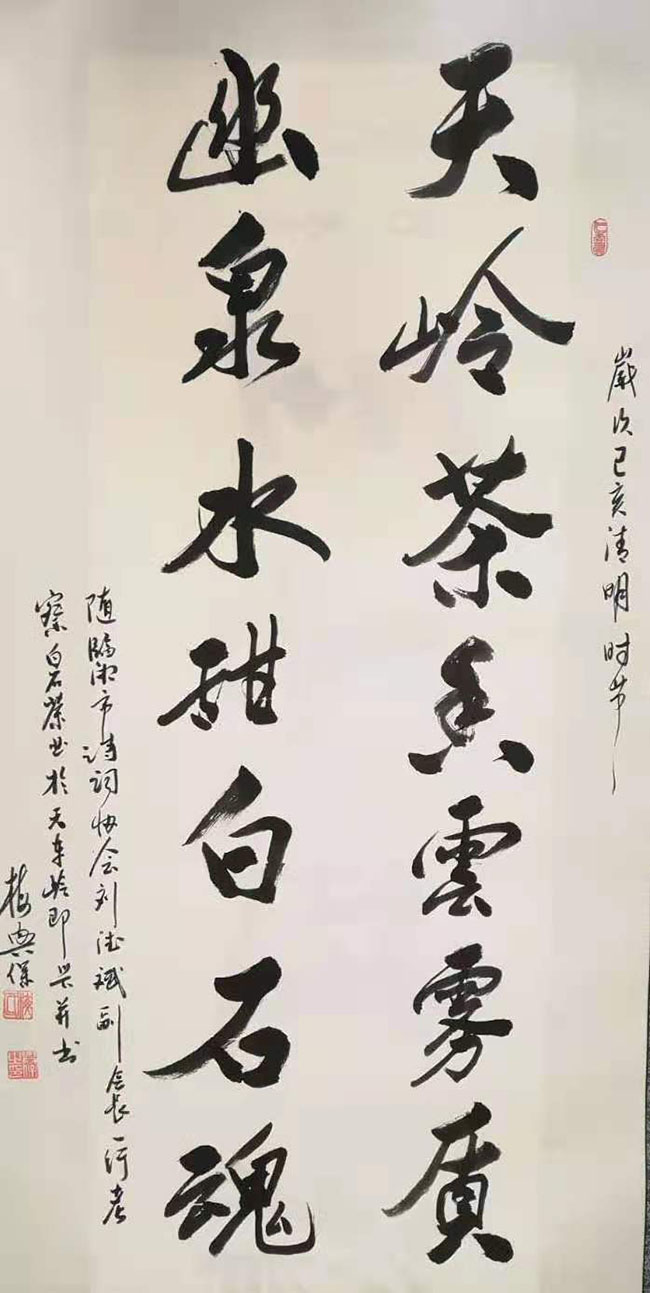 歲次己亥清明时节
天岭茶香雲雾质
幽泉水甜白石魂
随临湘市诗词协会刘斌副会长一行考
察白石茶业於天车岭即兴并书
梅典保